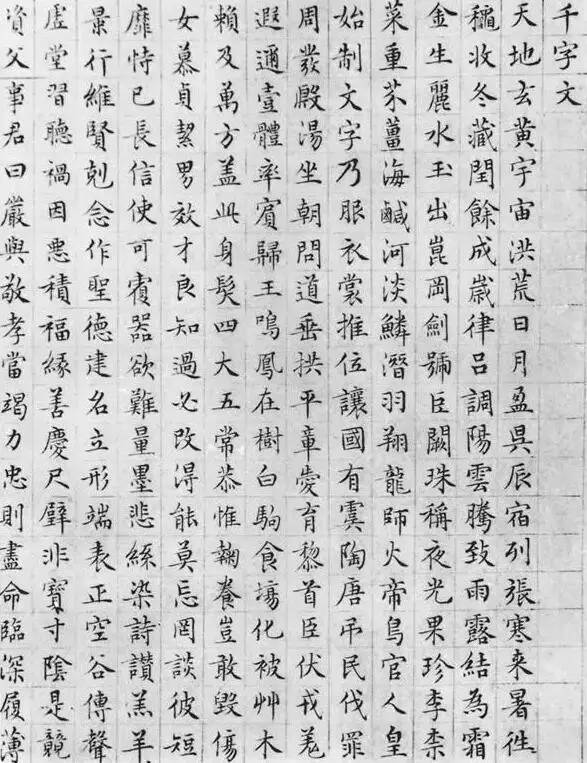 千字文
天地玄黃宇宙洪荒日月盈昃辰宿列張寒来暑徃
穐收冬藏閏餘成歲律呂調陽雲騰致雨露結為霜
金生麗水玉出崑岡劍號巨闕珠稱夜光果珍李柰
菜重芥薑海鹹河淡鱗潛羽翔龍師火帝鳥官人皇
始制文字乃服衣裳推位讓國有虞陶唐弔民伐罪
周發殷湯坐朝問道垂拱平章愛育黎首臣伏戎羌
遐邇壹體率賓歸王鳴鳳在樹白駒食塲化被艸木
賴及萬方盖此身髮四大五常恭惟鞠養豈敢毀傷
女慕貞絜男效才良知過必改得能莫忘罔談彼短
靡恃己長信使可覆器欲難量墨悲絲染詩讃羔羊
景行維賢剋念作聖德建名立形端表正空谷傳聲
虛堂習聽禍因悪積福緣善慶尺璧非寶寸陰是競
資父事君曰嚴與敬孝當竭力忠則盡命臨深履薄